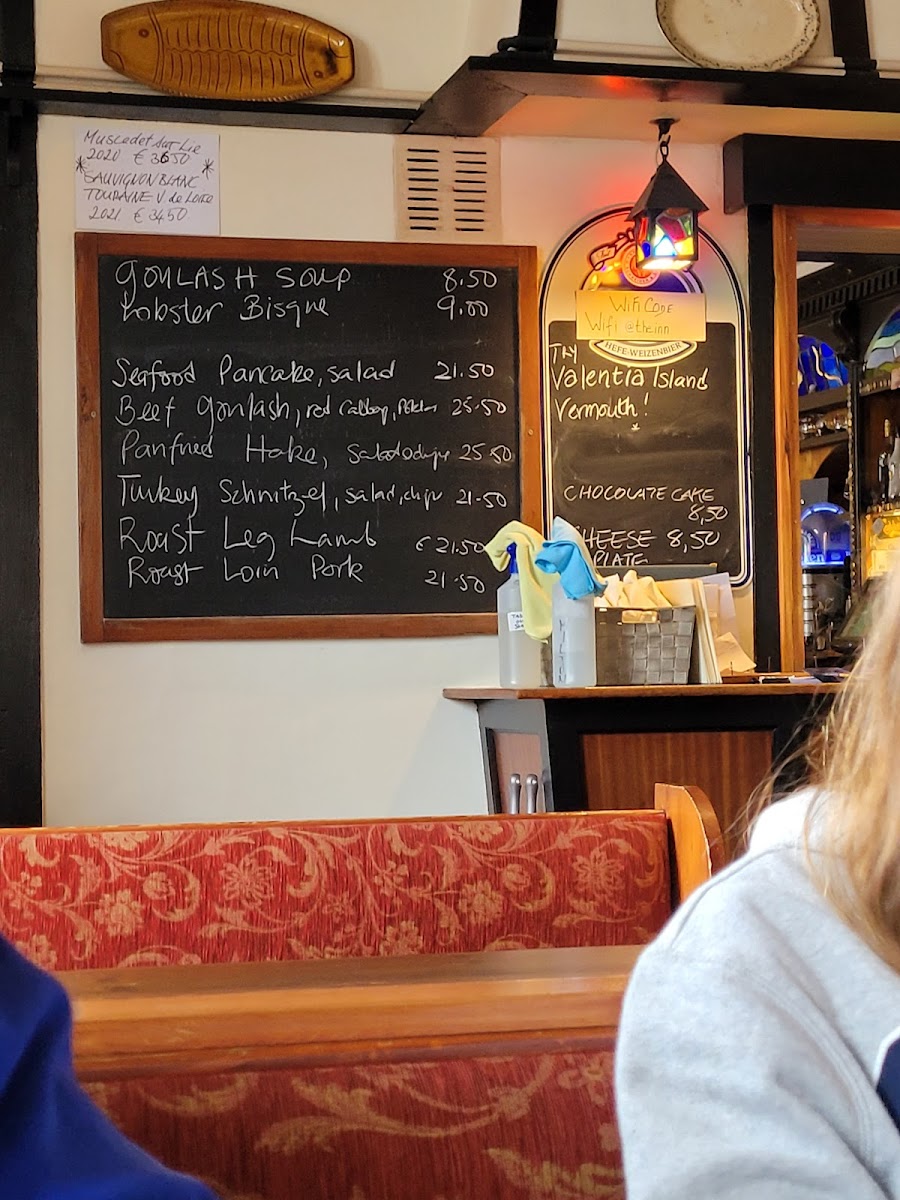 Muscadet Sur Lie
2020 € 3650
SAUVIGNON BLANC
TOURAINE V de Loire
2021 € 3450
GOULASH SOUP 8.50
Lobster Bisque 9.00
Seafood Pancake, salad 21.50
Beef Goulash, red Cabbag, 25.50
Panfried Hake, 25.50
Turkey Schnitzel, salad, chips 21.50
Roast Leg Lamb € 21.50
Roast Loin Pork 21.50
WiFi CODE
Wifi @theinn
HEFE-WEIZENBIER
Try
Valentia Island
Vermouth!
CHOCOLATE CAKE
8,50
CHEESE 8,50
PLATE